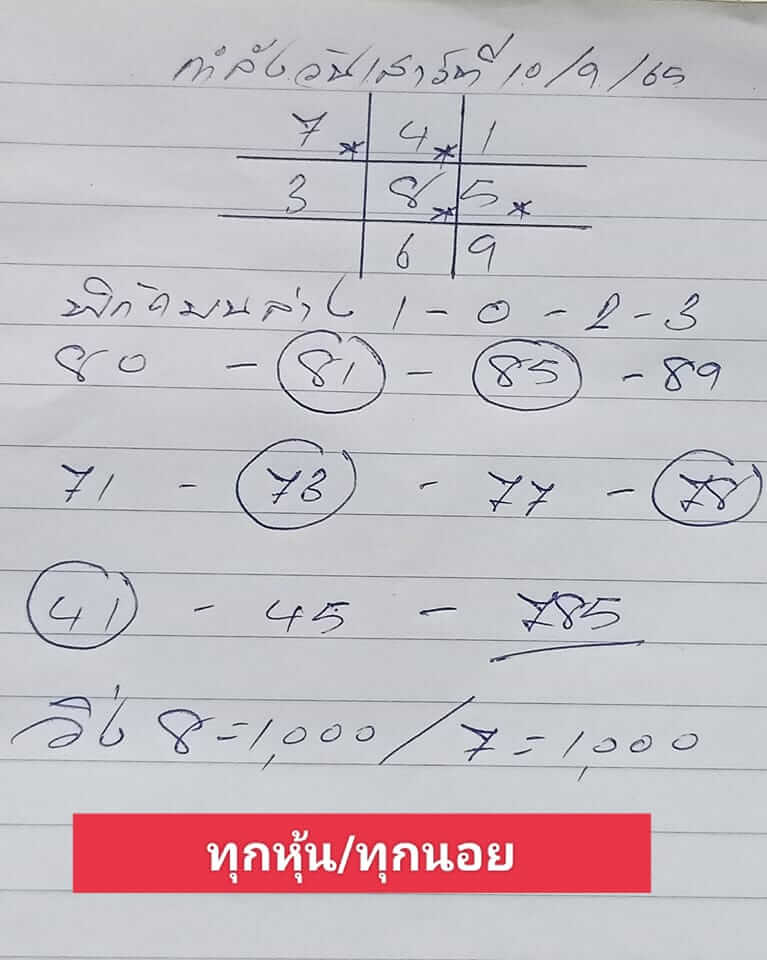 กำลังวันเสาร์ที่ 10/9/65
7* 4* 1
3 8* 5*
6 9
พิกัดบนล่าง 1-0-2-3
80 - 81 - 85 - 89
71 - 73 - 77 - 78
41 - 45 - 785
วิ่ง 8=1,000/7=1,000
ทุกหุ้น/ทุกนอย